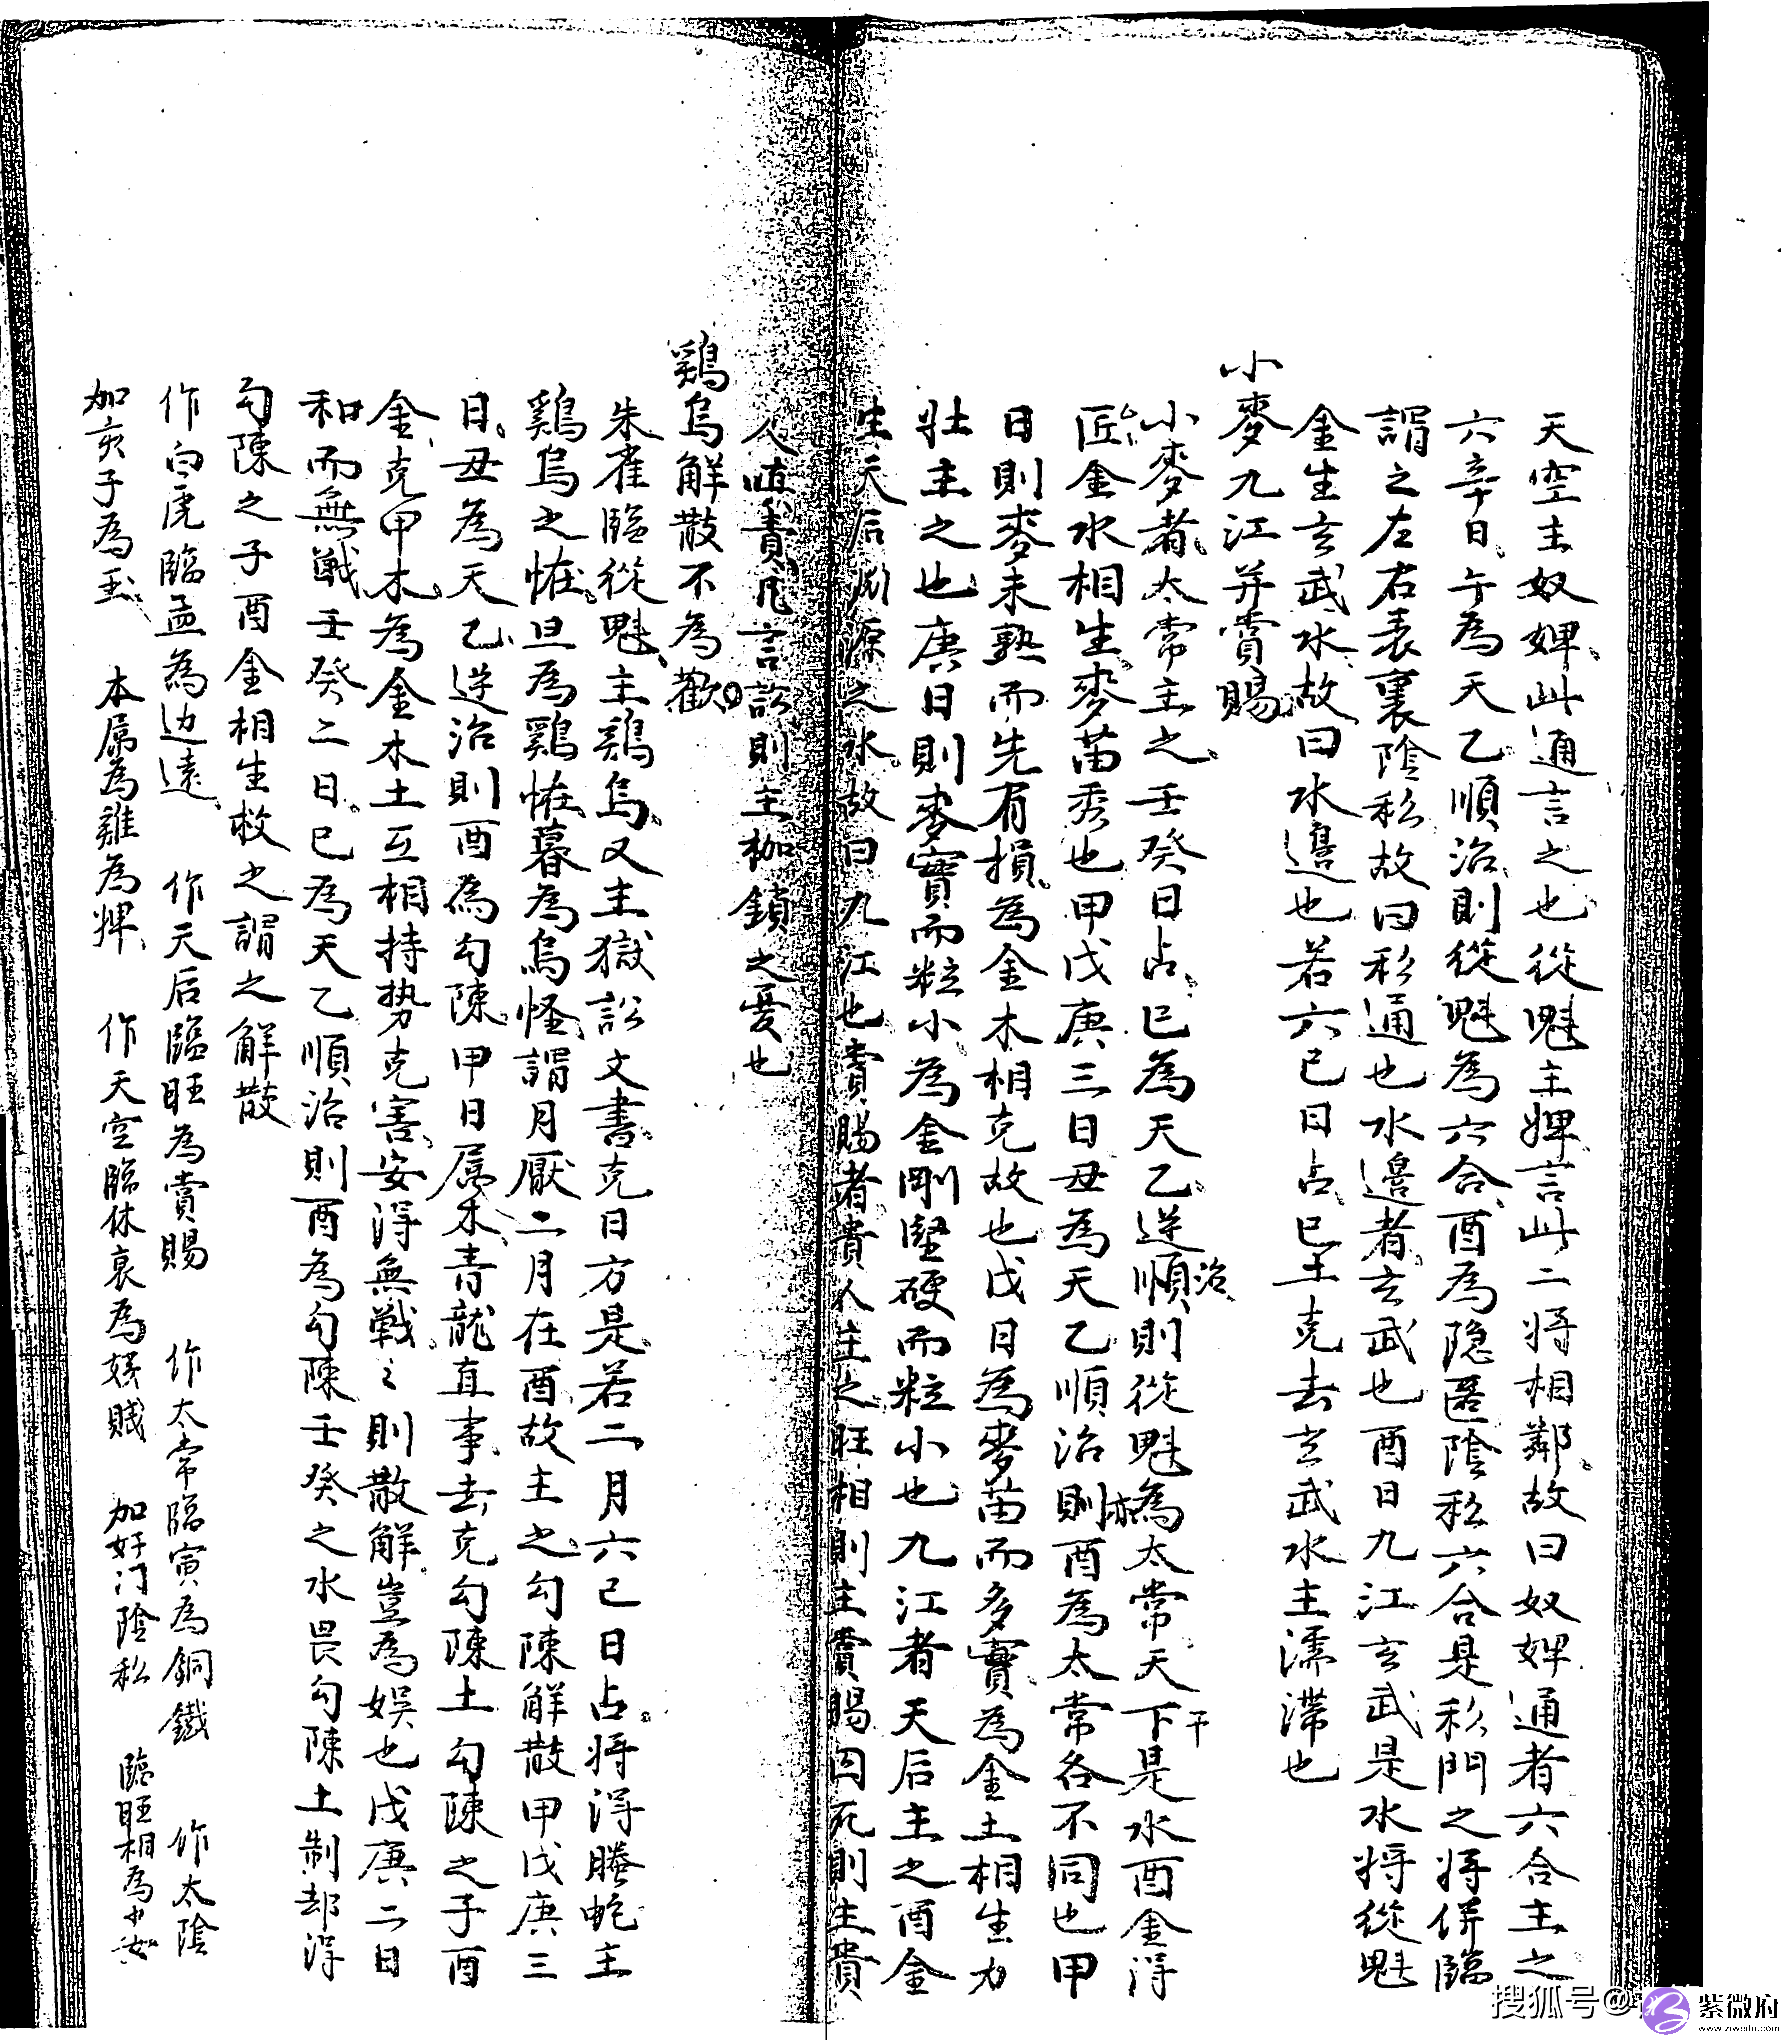 天空主奴婢此通言之也從魁主婢言此二将相鄰故曰奴婢通者六合主之
六辛日午為天乙順治則從魁為六合酉為隐匿陰私六合是私門之将併臨
謂之左右表裏陰私故曰私通也水邊者玄武也酉日九江玄武是水将從魁
金生玄武水故曰水邊也若六已日占巳土克去玄武水主濡滞也
小麥九江并賞賜
小麥者太常主之壬癸日占巳為天乙逆順治則從魁為太常天下干是水酉金得
匠金水相生麥苗秀也甲戊庚三日丑為天乙順治則亦酉為太常各不同也甲
日則麥未熟而先有損為金木相克故也戊日為麥苗而多實為金土相生力
壯主之也庚日則麥實而粒小為金剛堅硬而粒小也九江者天后主之酉金
生天后淵源之水故曰九江也賞賜者貴人生之旺相則主賞賜囚死則主貴
人嗔責凡言訟則主枷鎖之憂也
鷄烏解散不為歡
朱雀臨從魁主鷄烏又主獄訟文書克日方是若二月六己日占将得螣蛇主
鷄烏之恠旦為鷄恠暮為烏怪謂月厭二月在酉故主之勾陳解散甲戊庚三
日丑為天乙逆治則酉為勾陳甲日属木青龍直事去克勾陳土勾陳之子酉
金克甲木為金木土互相持势克害安得無戰々則散解豈為娯也戊庚二日
和而無戰壬癸二日巳為天乙順治則酉為勾陳壬癸之水畏勾陳土制却得
勾陳之子酉金相生救之謂之解散
作白虎臨孟為边遠 作天后臨旺為賞賜 作太常臨寅為銅鐵 作太陰
加亥子為玉 本属為雞為婢 作天空臨休衰為婢賤 加奸门陰私 臨旺相為少女
搜狐号@紫微府
www.ziweifu.com